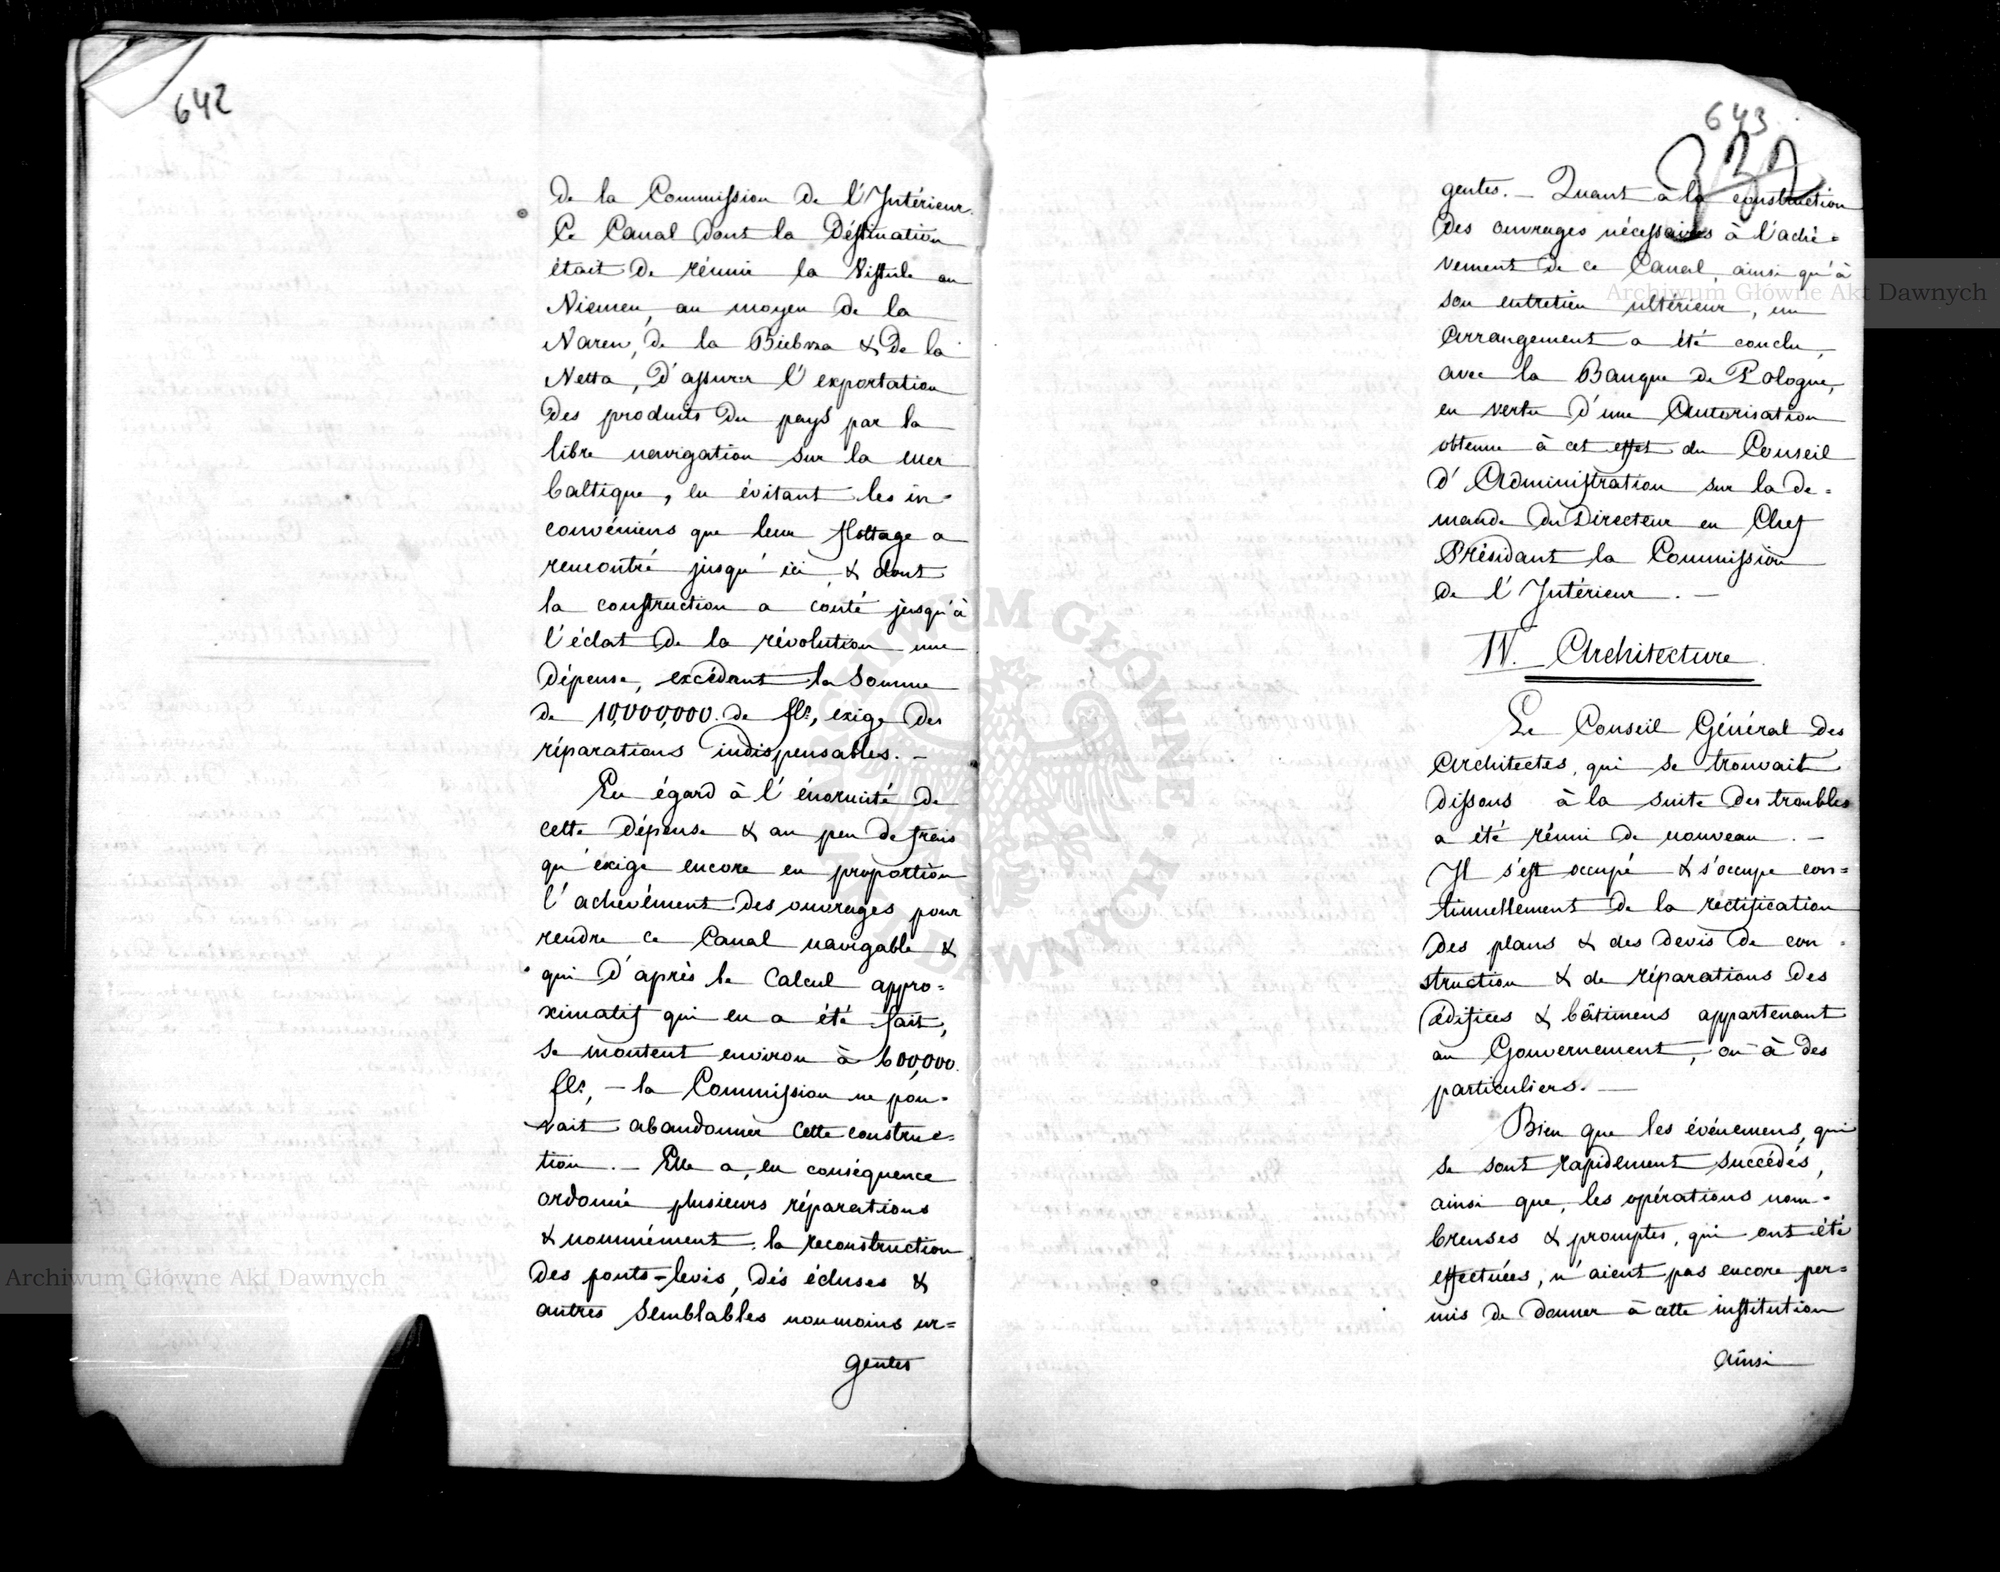 642
de la Commission de l'Intérieur.
Ce Canal dont la Déstination
était de réunir la Vistule au
Niemen, au moyen de la
Narew, de la Biebrza & de la
Netta, d'assurer l'exportation
des produits du pays par la
libre navigation sur la mer
baltique, en évitant les in=
convéniens que leur flottage a
rencontré jusqu'ici, & dont
la construction a couté jusqu'à
l'éclat de la révolution une
dépense, excédant la Somme
de 10,000,000. de fls, exige des
réparations indispensables. —
Eu égard à l'énormité de
cette dépense & au peu de frais
qu'éxige encore en proportion
l'achévément des ouvrages pour
rendre ce Canal navigable &
qui d'après le Calcul appro=
ximatif qui en a été fait,
se montent environ à 600,000.
fls, — la Commission ne pou=
vait abandonner cette construc=
tion. — Elle a, en conséquence
ordonné plusieurs réparations
& nommément, la reconstruction
des ponts-levis, dés écluses &
autres semblables non moins ur=
gentes
643
gentes. — Quant à la construction
des ouvrages nécessaires à l'aché=
vement de ce Canal, ainsi qu'à
son entretien ultérieur, un
Arrangement a été conclu,
avec la Banque de Pologne,
en vertu d'une Autorisation
obtenue à cet effet du Conseil
d'Administration sur la de=
mande du Directeur en Chef
Présidant la Commission
de l'Intérieur. —
IV. Architecture.
Le Conseil Général des
Architectes, qui se trouvait
dissous à la suite des troubles
a été réuni de nouveau. —
Il s'est occupé & s'occupe con=
tinuellement de la rectification
des plans & des devis de con=
struction & de réparations des
édifices & bâtimens appartenant
au Gouvernement, ou à des
particuliers. —
Bien que les événemens, qui
se sont rapidement succédés,
ainsi que, les opérations nom=
breuses & promptes, qui ont été
effectuées, n'aient pas encore per=
mis de donner à cette institution
ainsi
Archiwum Główne Akt Dawnych
Archiwum Główne Akt Dawnych
ARCHIWUM GŁÓWNE AKT DAWNYCH